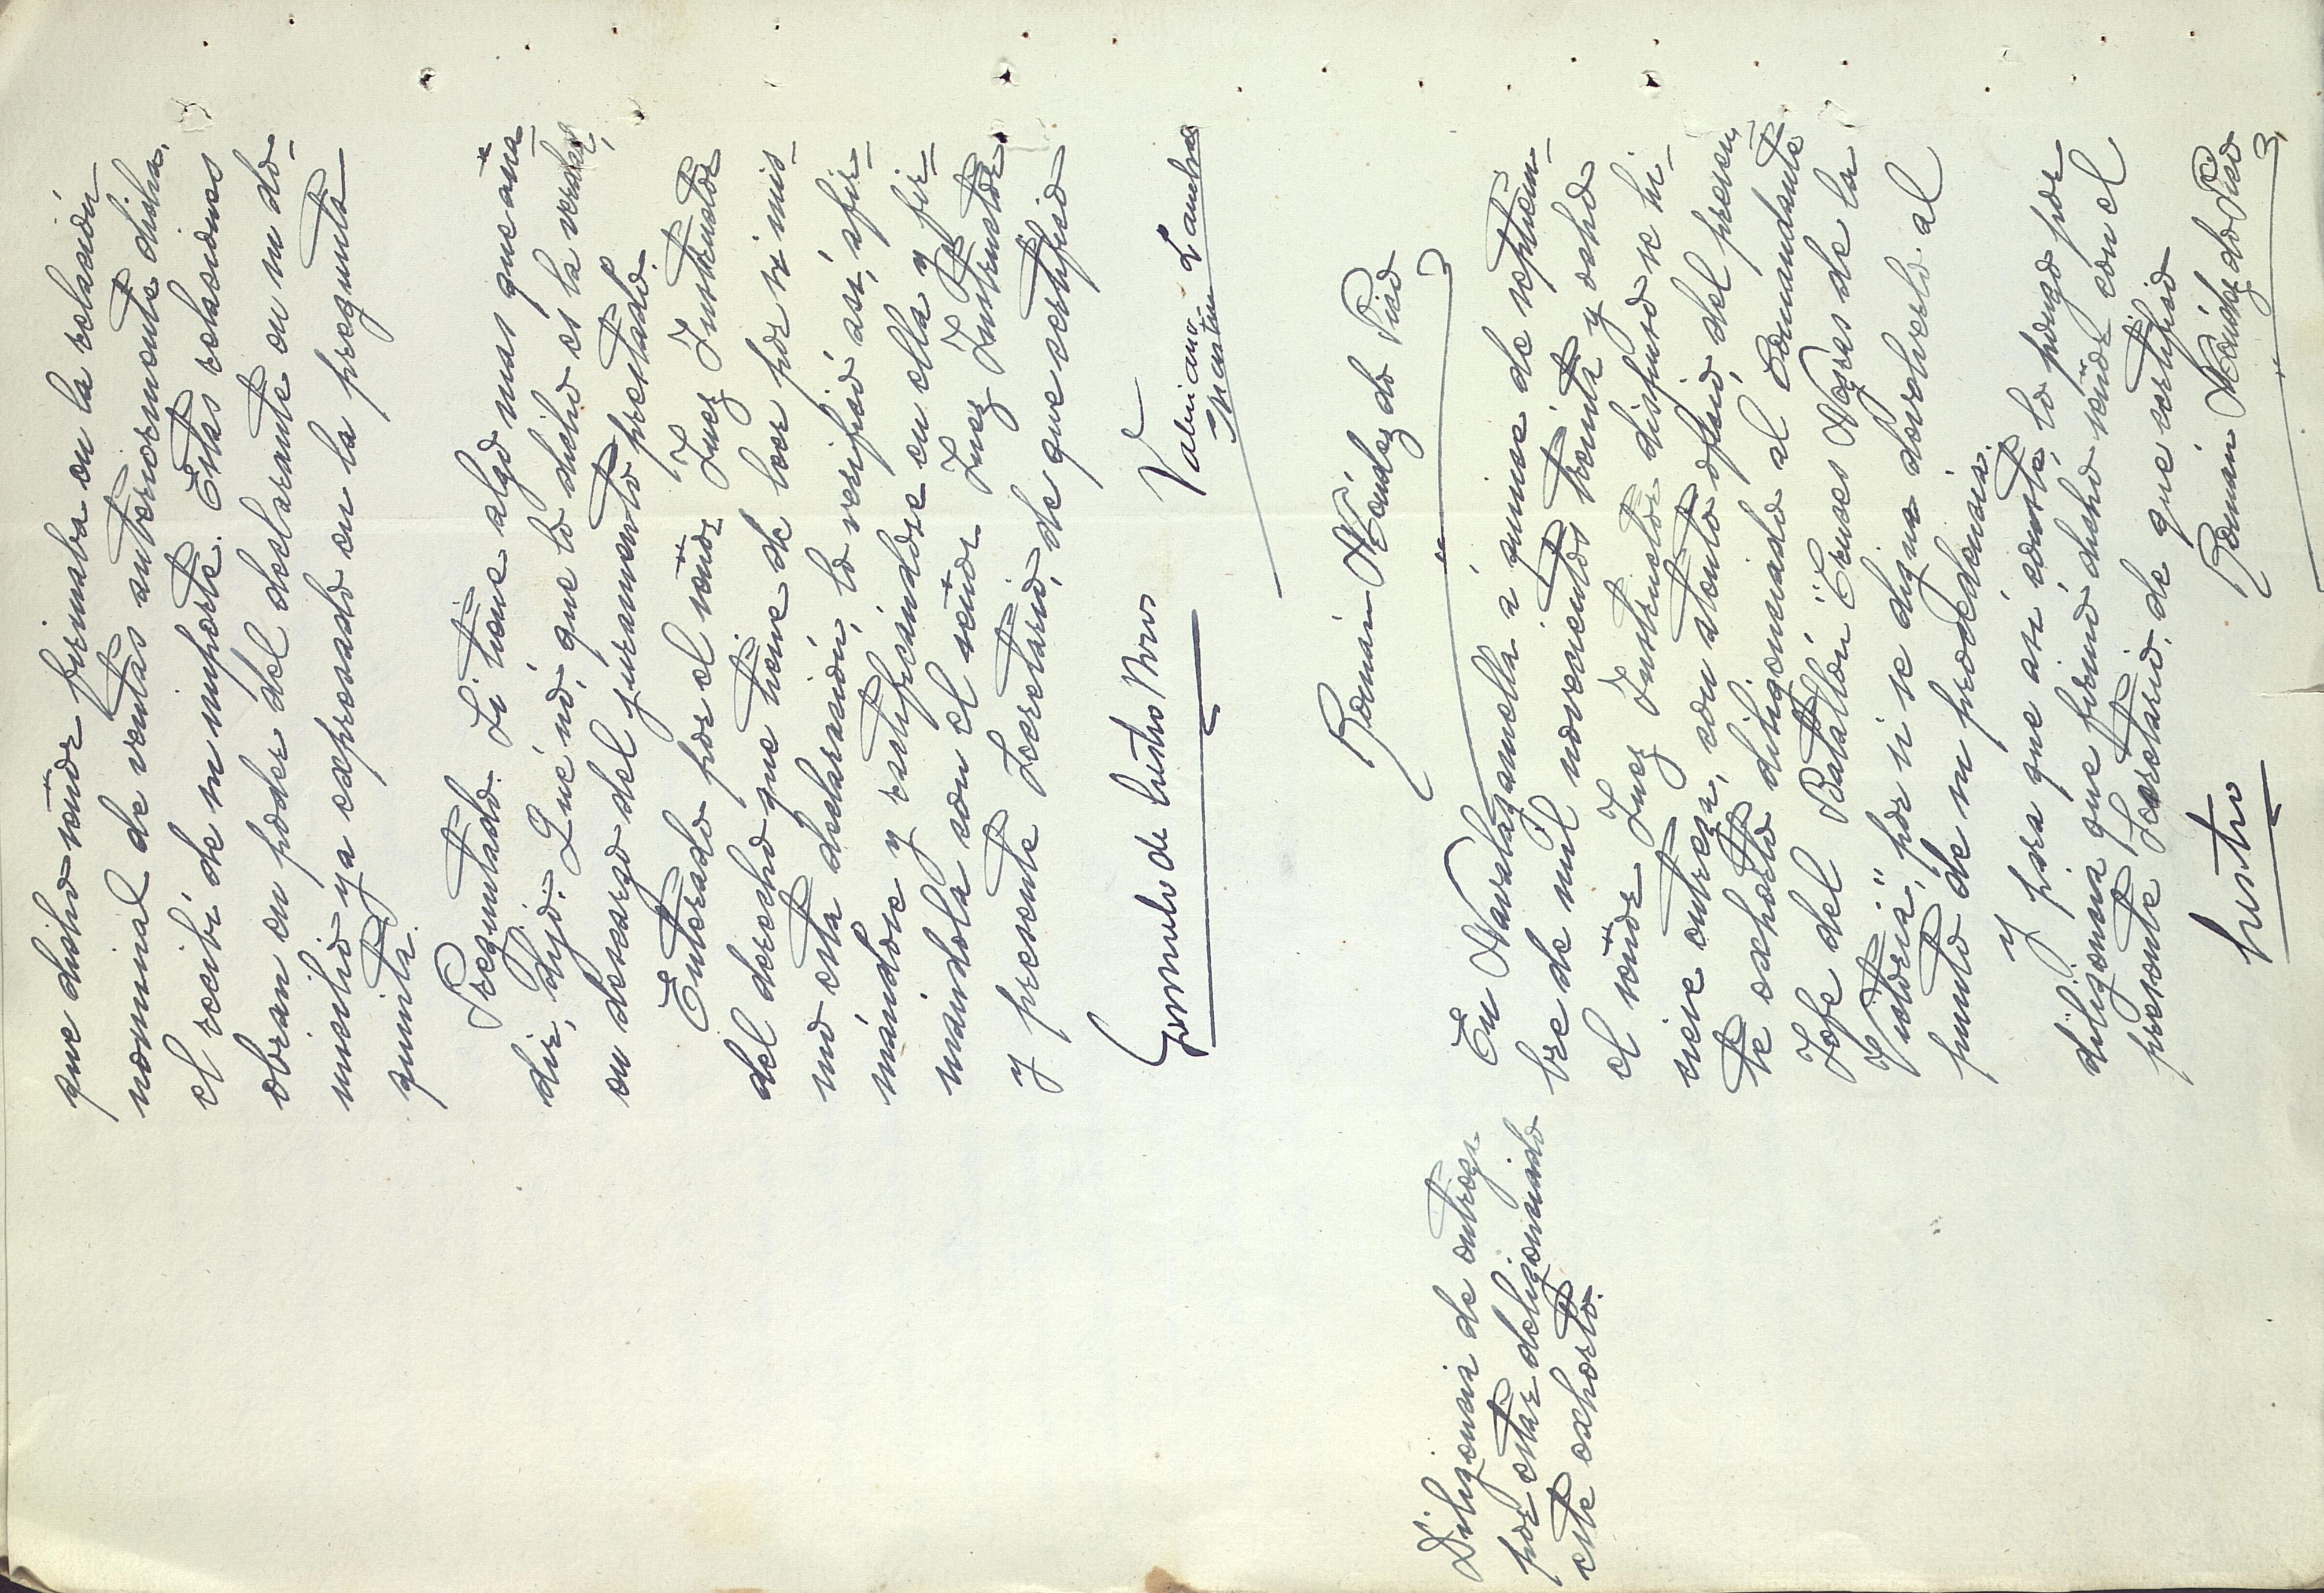 que dicho señor firmaba en la relación
nominal de ventas anteriormente dicha,
el recibí de su importe. Estas relaciones
obran en poder del declarante en su do-
micilio ya expresado en la pregunta
quinta.
Preguntado. Si tiene algo mas que aña-
dir, dijo: Que nó, que lo dicho es la verdad,
en descargo del juramento prestado.
Enterado por el señor Juez Instructor
del derecho que tiene de leer por si mis-
mo esta declaración, lo verificó asi, afir-
mándose y ratificándose en ella y fir-
mandola con el señor Juez Instructor
y presente Secretario, de que certifico
Gonzalo de Castro
Valeriano Lambas
Martin
Román Méndez do Pico
Diligencia de entrega
por estar deligenciado
este exhorto.
En Navalagamella a quince de septiem-
bre de mil novecientos treinta y ocho
el señor Juez Instructor dispuso se hi-
ciera entrega, con atento oficio, del presen-
te exhorto diligenciado al Comandante
Jefe del Batallón "Cruces Negras de la
Victoria", por si se digna devolverlo al
punto de su procedencia.
Y para que asi conste, lo pongo por
diligencia que firmó dicho señor con el
presente Secretario, de que certifico
Castro
Román Méndez do Pico